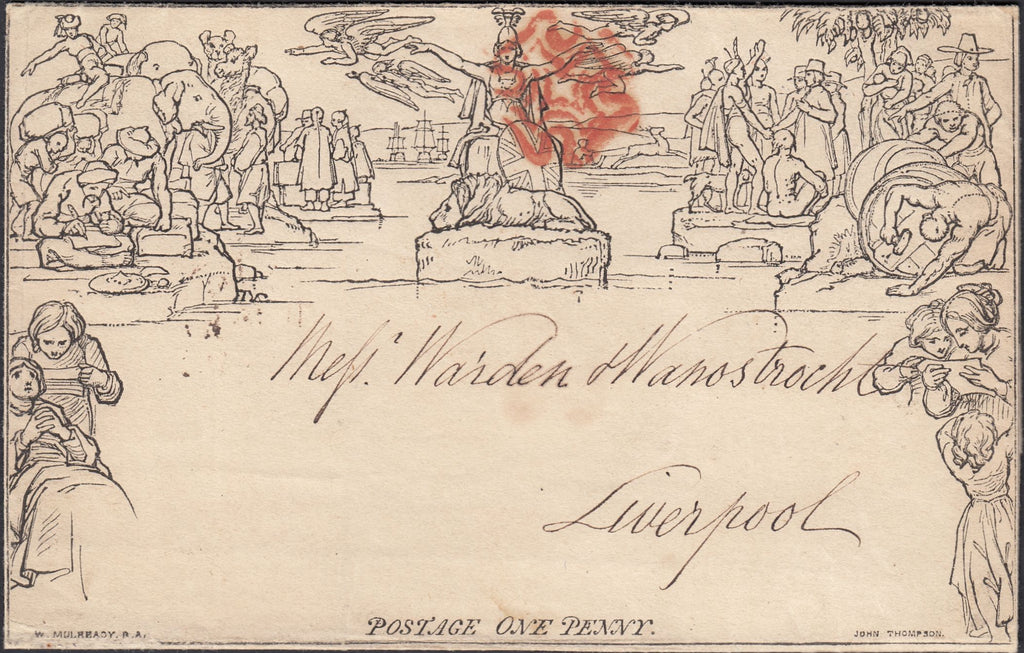 Messrs. Warden & Wanostrocht
Liverpool
POSTAGE ONE PENNY.
W. MULREADY, R.A.
JOHN THOMPSON.